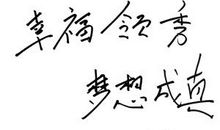 幸福领秀
梦想成真